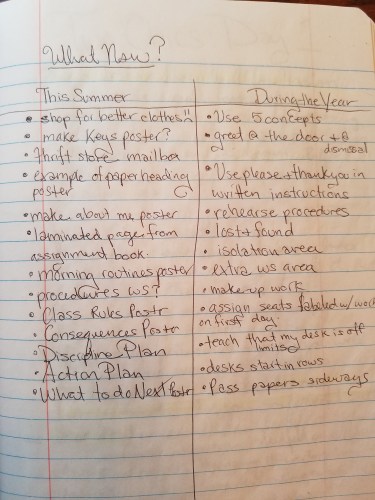 What Now?
This Summer
• shop for better clothes!!
• make Keys poster?
• thrift store mailbox
• example of paper heading
poster
• make about me poster
• laminated pages from
assignment book.
• morning routines poster
• procedures ws?
• Class Rules Postr
• Consequences Postr
• Discipline Plan
• Action Plan
• What to do Next Postr
During the Year
• Use 5 concepts
• greet @ the door + @
dismissal
• Use please + thank you in
written instructions
• rehearse procedures
• lost + found
• isolation area
• extra ws area
• make-up work
• assign seats labeled w/ work
on first day.
• teach that my desk is off
limits
• desks start in rows
• Pass papers sideways